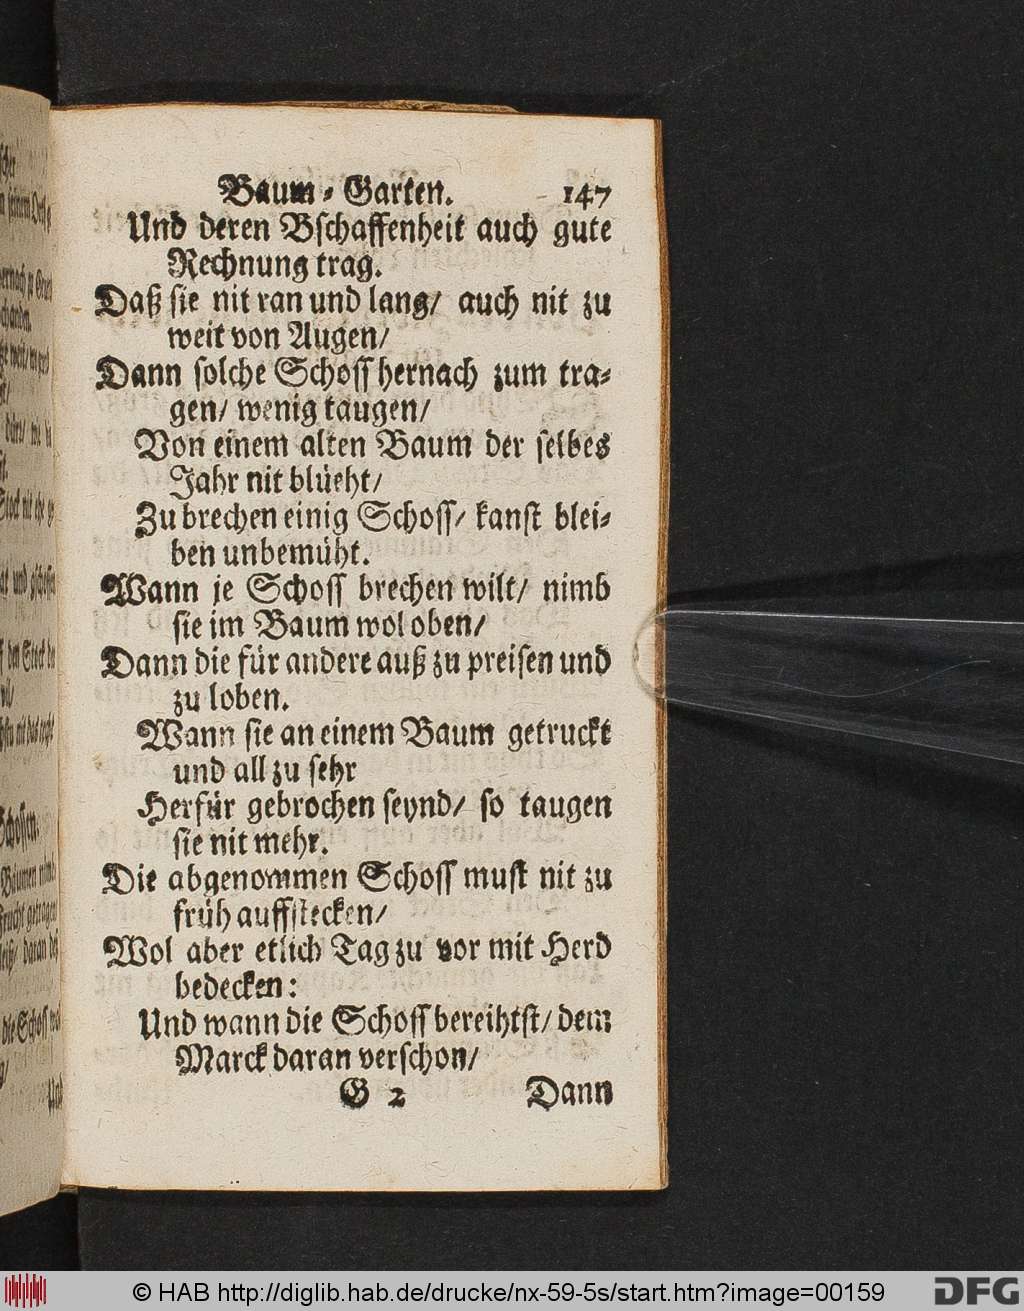 Baum-Garten. 147
Und deren Bschaffenheit auch gute
Rechnung trag.
Daß sie nit ran und lang/ auch nit zu
weit von Augen/
Dann solche Schoss hernach zum tra-
gen/ wenig taugen/
Von einem alten Baum der selbes
Jahr nit blüeht/
Zu brechen einig Schoss/ kanst blei-
ben unbemüht.
Wann je Schoss brechen wilt/ nimb
sie im Baum wol oben/
Dann die für andere auß zu preisen und
zu loben.
Wann sie an einem Baum getruckt
und all zu sehr
Herfür gebrochen seynd/ so taugen
sie nit mehr.
Die abgenommen Schoss must nit zu
früh auffstecken/
Wol aber etlich Tag zu vor mit Herd
bedecken:
Und wann die Schoss bereihtst/ dem
Marck daran verschon/
G 2 Dann
© HAB http://diglib.hab.de/drucke/nx-59-5s/start.htm?image=00159
DFG